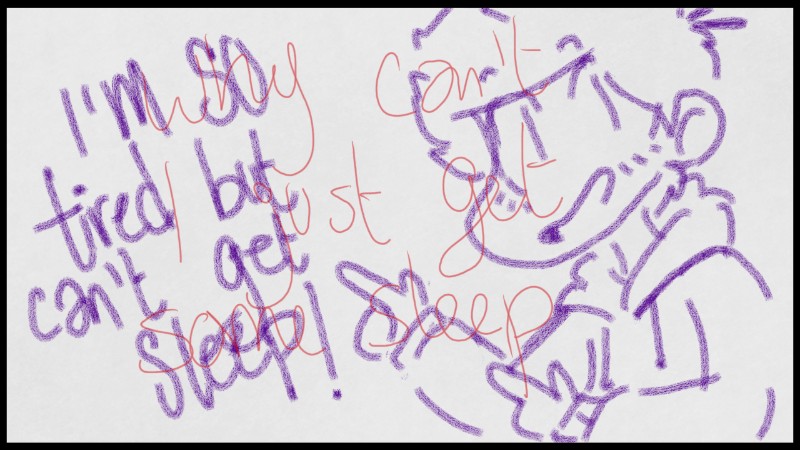 I'm so
tired but
can't get
sleep!
why can't
I just get
some sleep